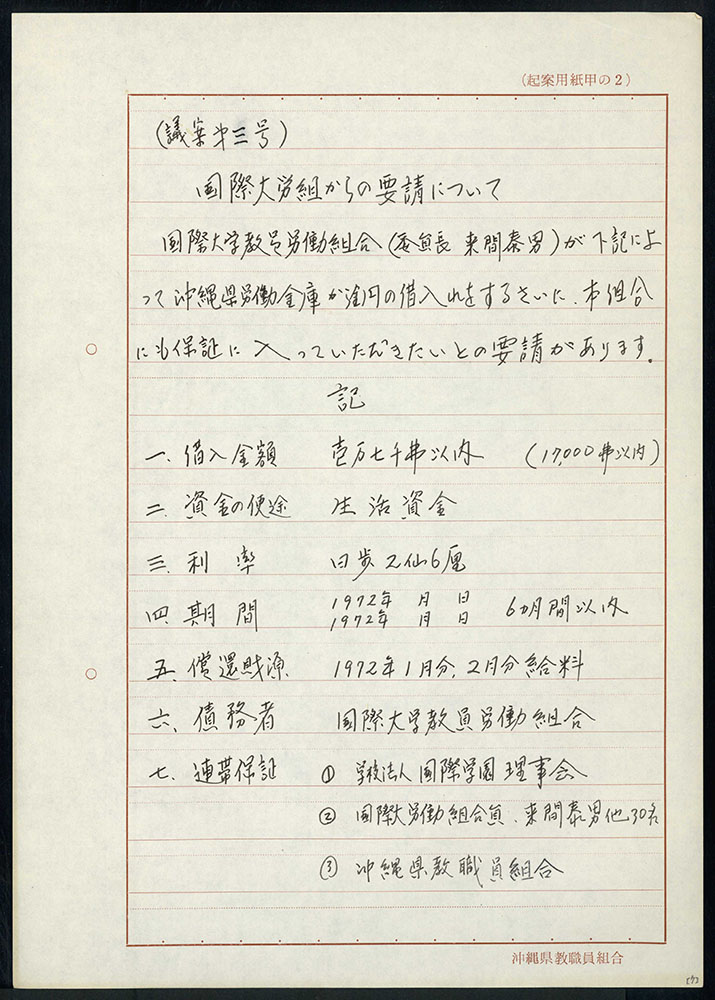 （起案用紙甲の2）
(議案才三号)
国際大労組からの要請について
国際大学教員労働組合(委員長 来間泰男)が下記によ
って沖縄県労働金庫から金円の借入れをするさいに、本組合
にも保証に入っていただきたいとの要請があります。
記
一、借入金額 壱万七千弗以内 (17,000弗以内)
二、資金の使途 生活資金
三、利率 日歩2仙6厘
四 期間 1972年 月 日 6カ月間以内
1972年 月 日
五、償還財源 1972年1月分、2月分給料
六、債務者 国際大学教員労働組合
七、連帯保証 ① 学校法人国際学園理事会
② 国際大労働組合員、来間泰男他30名
③ 沖縄県教職員組合
沖縄県教職員組合